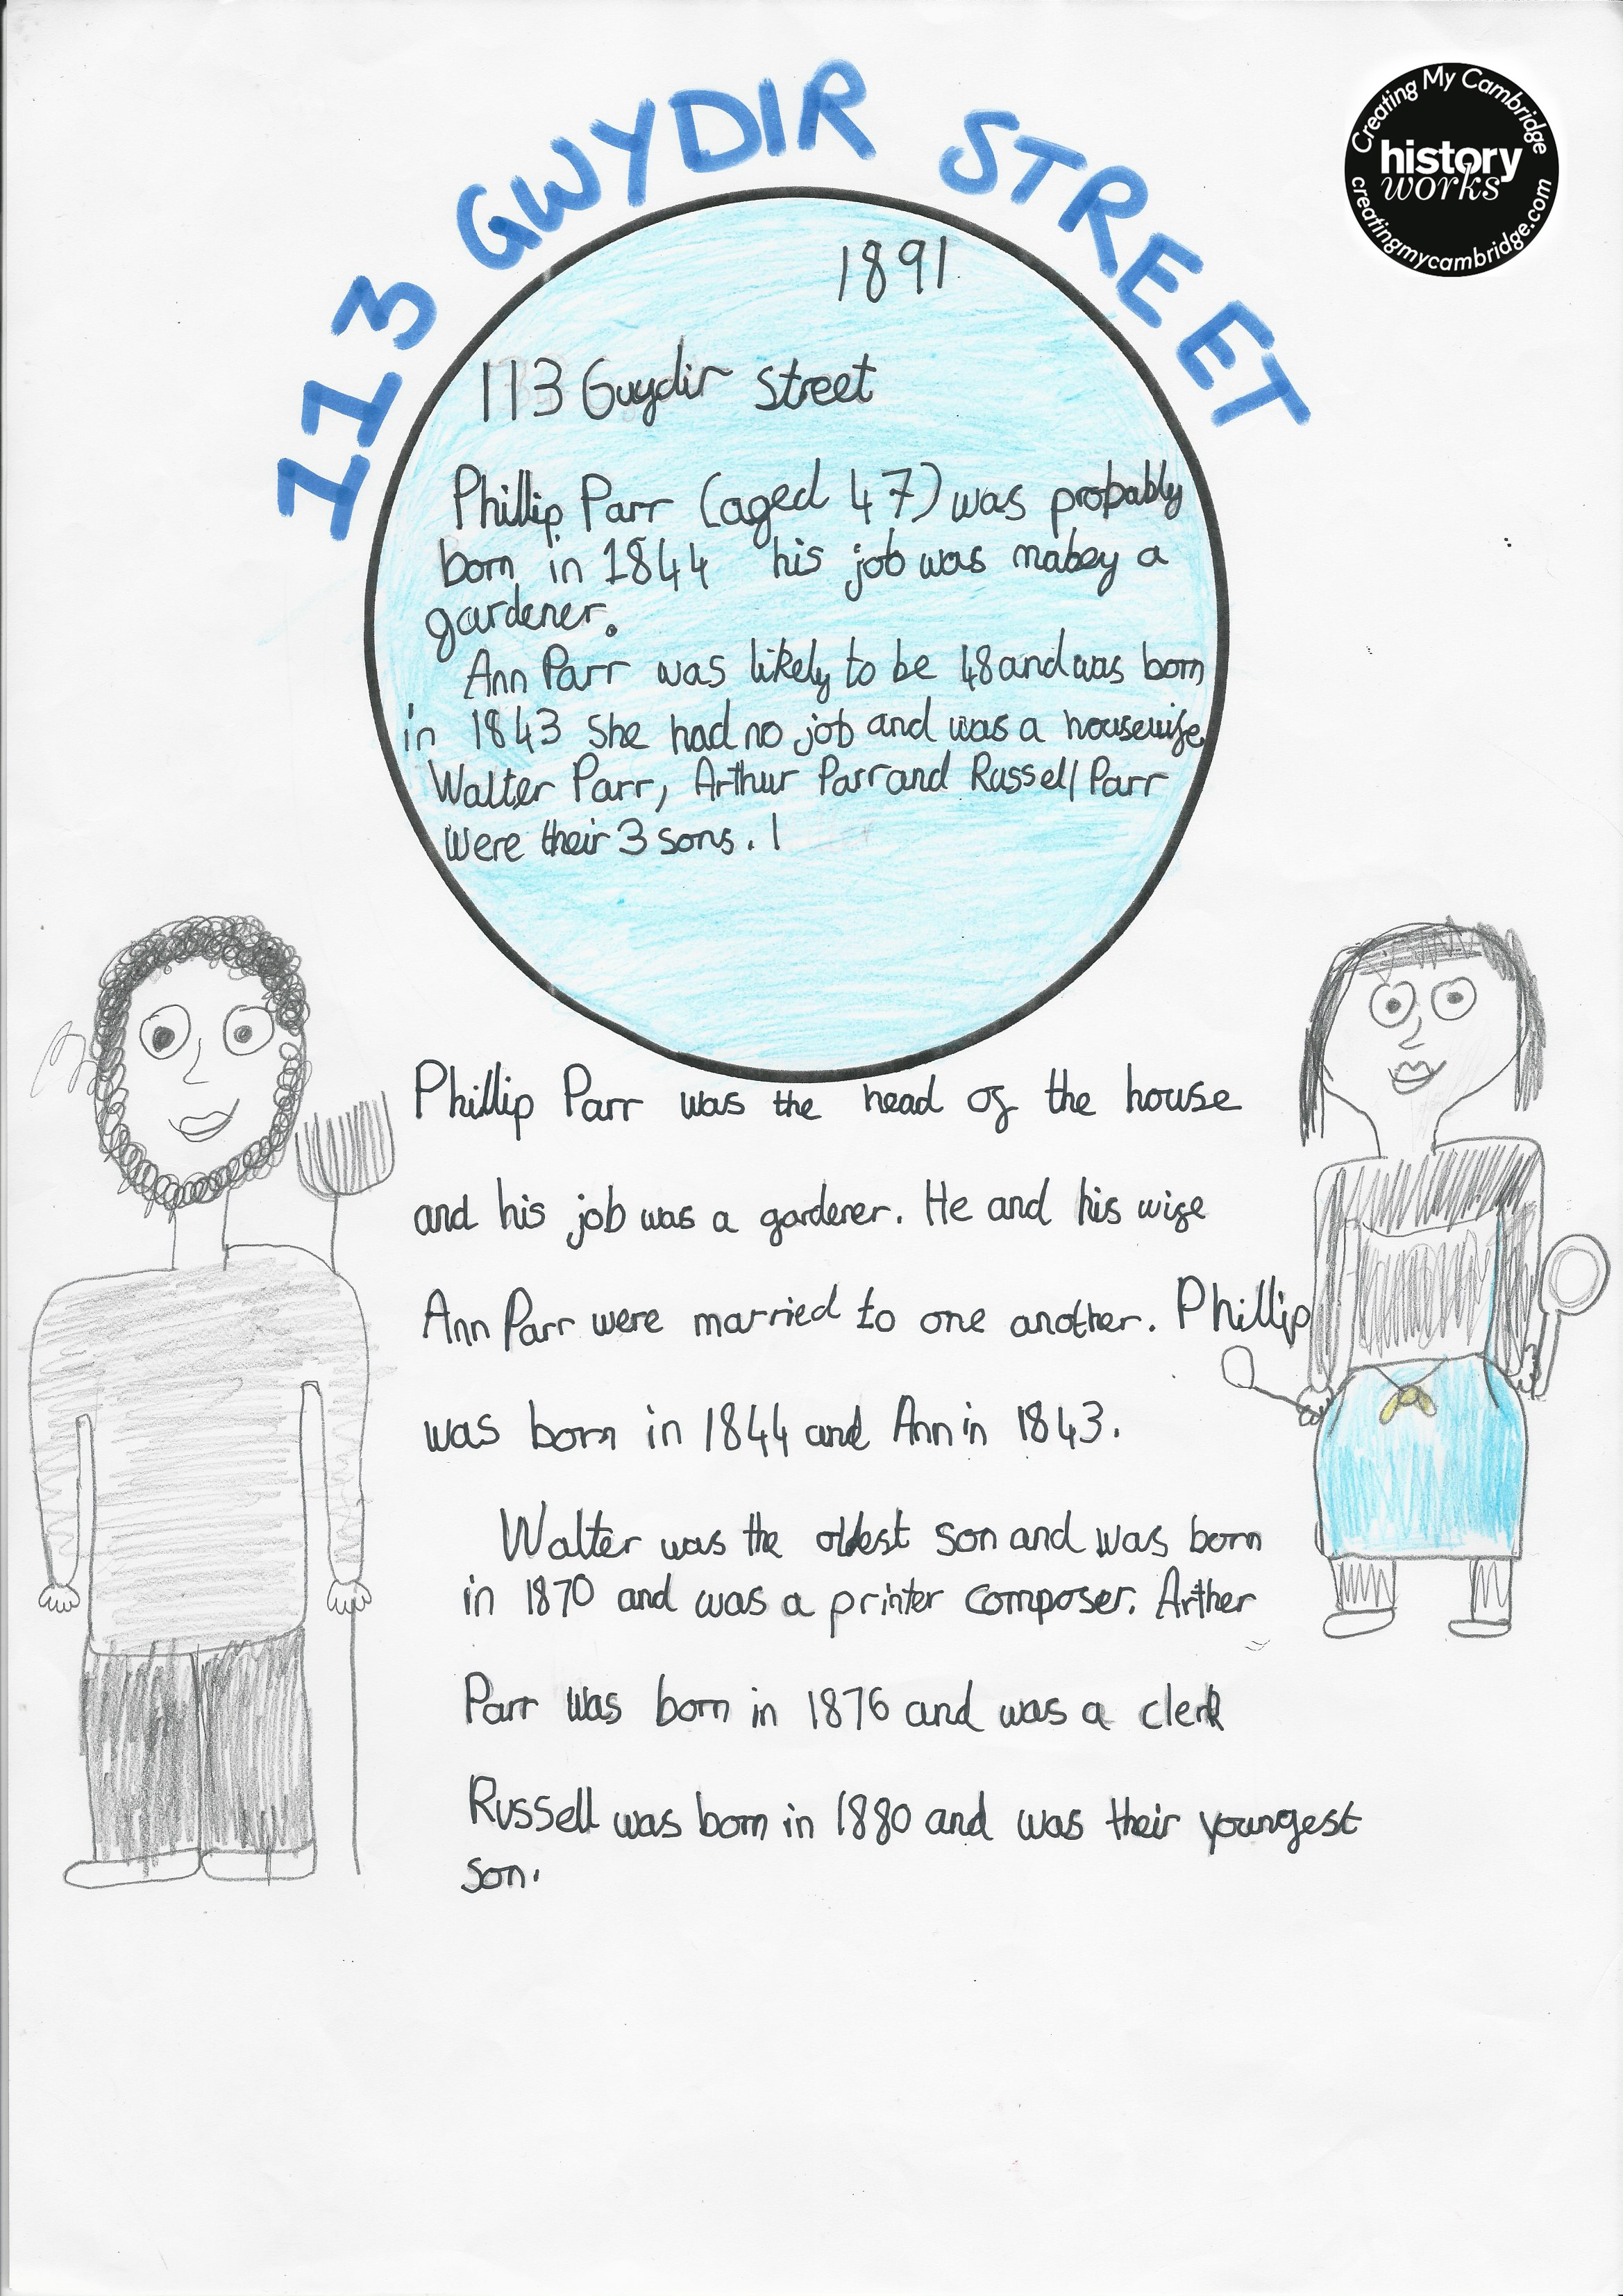 113 GWYDIR STREET
Creating My Cambridge
history
works
creatingmycambridge.com
1891
113 Gwydir Street
Phillip Parr (aged 47) was probably
born in 1844 his job was mabey a
gardener.
Ann Parr was likely to be 48 and was born
in 1843 She had no job and was a housewife.
Walter Parr, Arthur Parr and Russell Parr
were their 3 sons. !
Phillip Parr was the head of the house
and his job was a gardener. He and his wife
Ann Parr were married to one another. Phillip
was born in 1844 and Ann in 1843.
Walter was the oldest son and was born
in 1870 and was a printer composer. Arther
Parr was born in 1876 and was a clerk
Russell was born in 1880 and was their youngest
son.